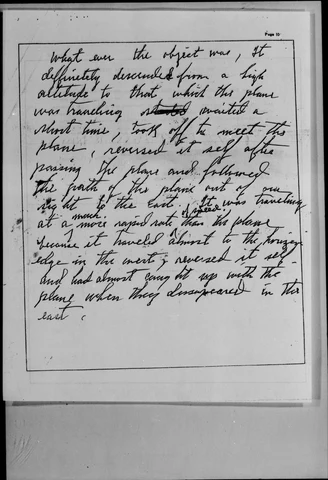 Page 10
What ever the object was, it
deffinetely descended from a high
altitude to that which the plane
was traveling awaited a
short time, took off to meet the
plane, reversed it self after
passing the plane and followed
the path of the plane out of our
sight to the East. It was traveling
at a much more rapid rate of speed than the plane
because it traveled almost to the
edge in the west, reversed it self
and had almost caught up with the
plane when they dissapeared in the
east.